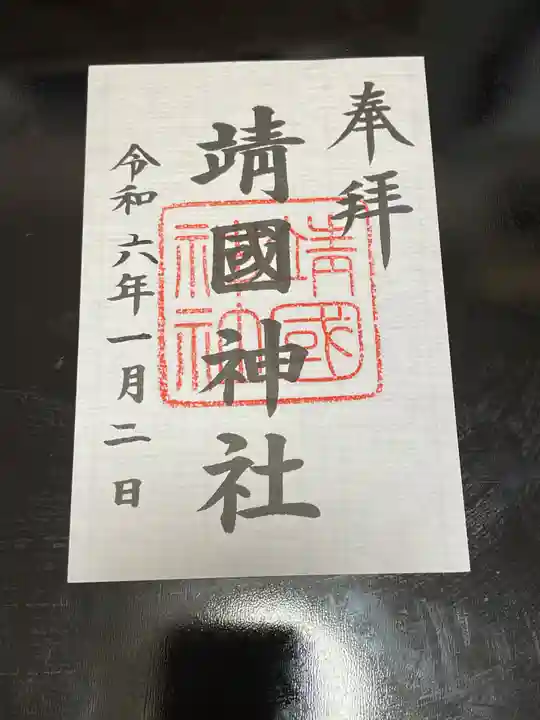 奉拝
靖國神社
令和六年一月二日
靖國
神社